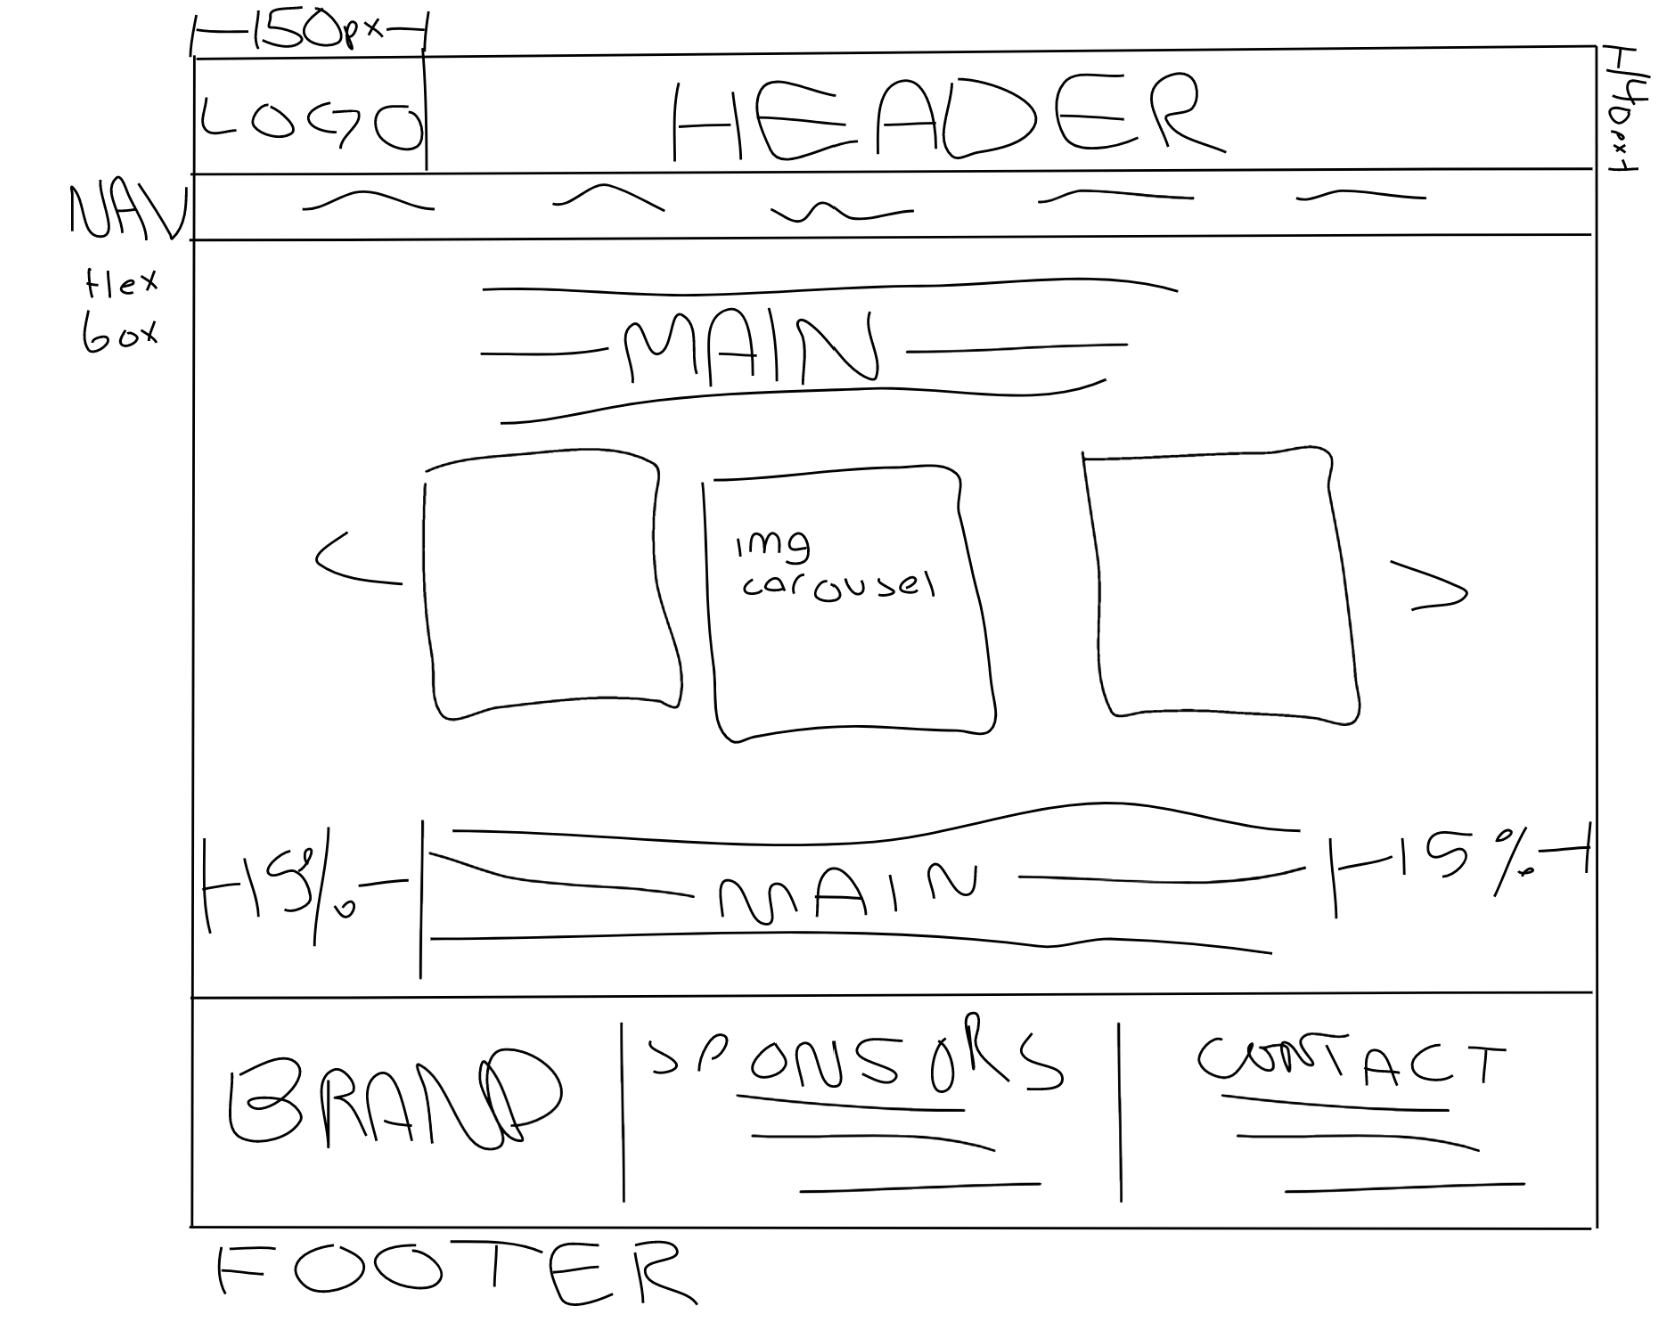 150px
LOGO
HEADER
140px
NAV
flex
box
MAIN
img
carousel
15%
MAIN
15%
BRAND
SPONSORS
CONTACT
FOOTER